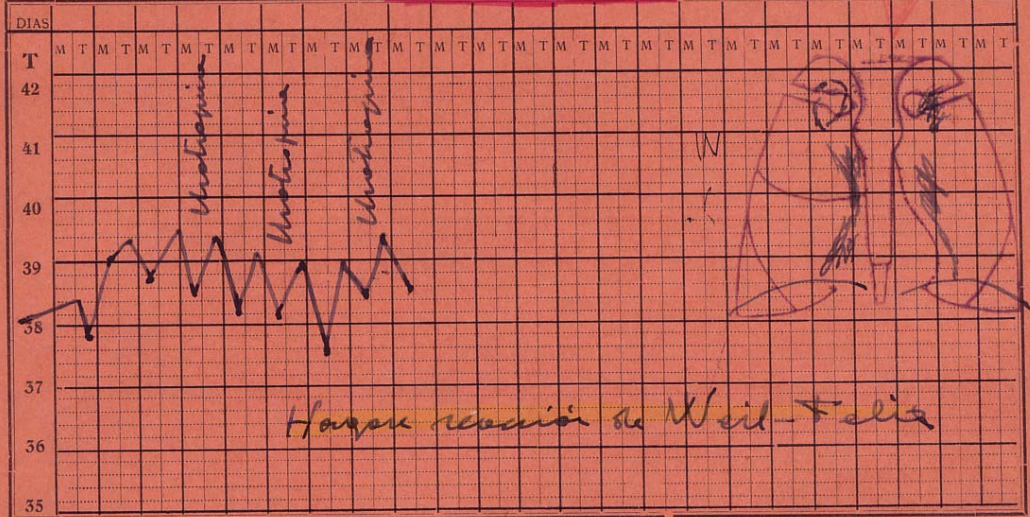 DIAS
T M T M T M T M T M T M T M T M T M T M T M T M T M T M T M T M T M T M T M T M T M T M T M T
42
41
40
39
38
37
36
35
Urotropina
Urotropina
Urotropina
Hagase reacción de Weil-Felix